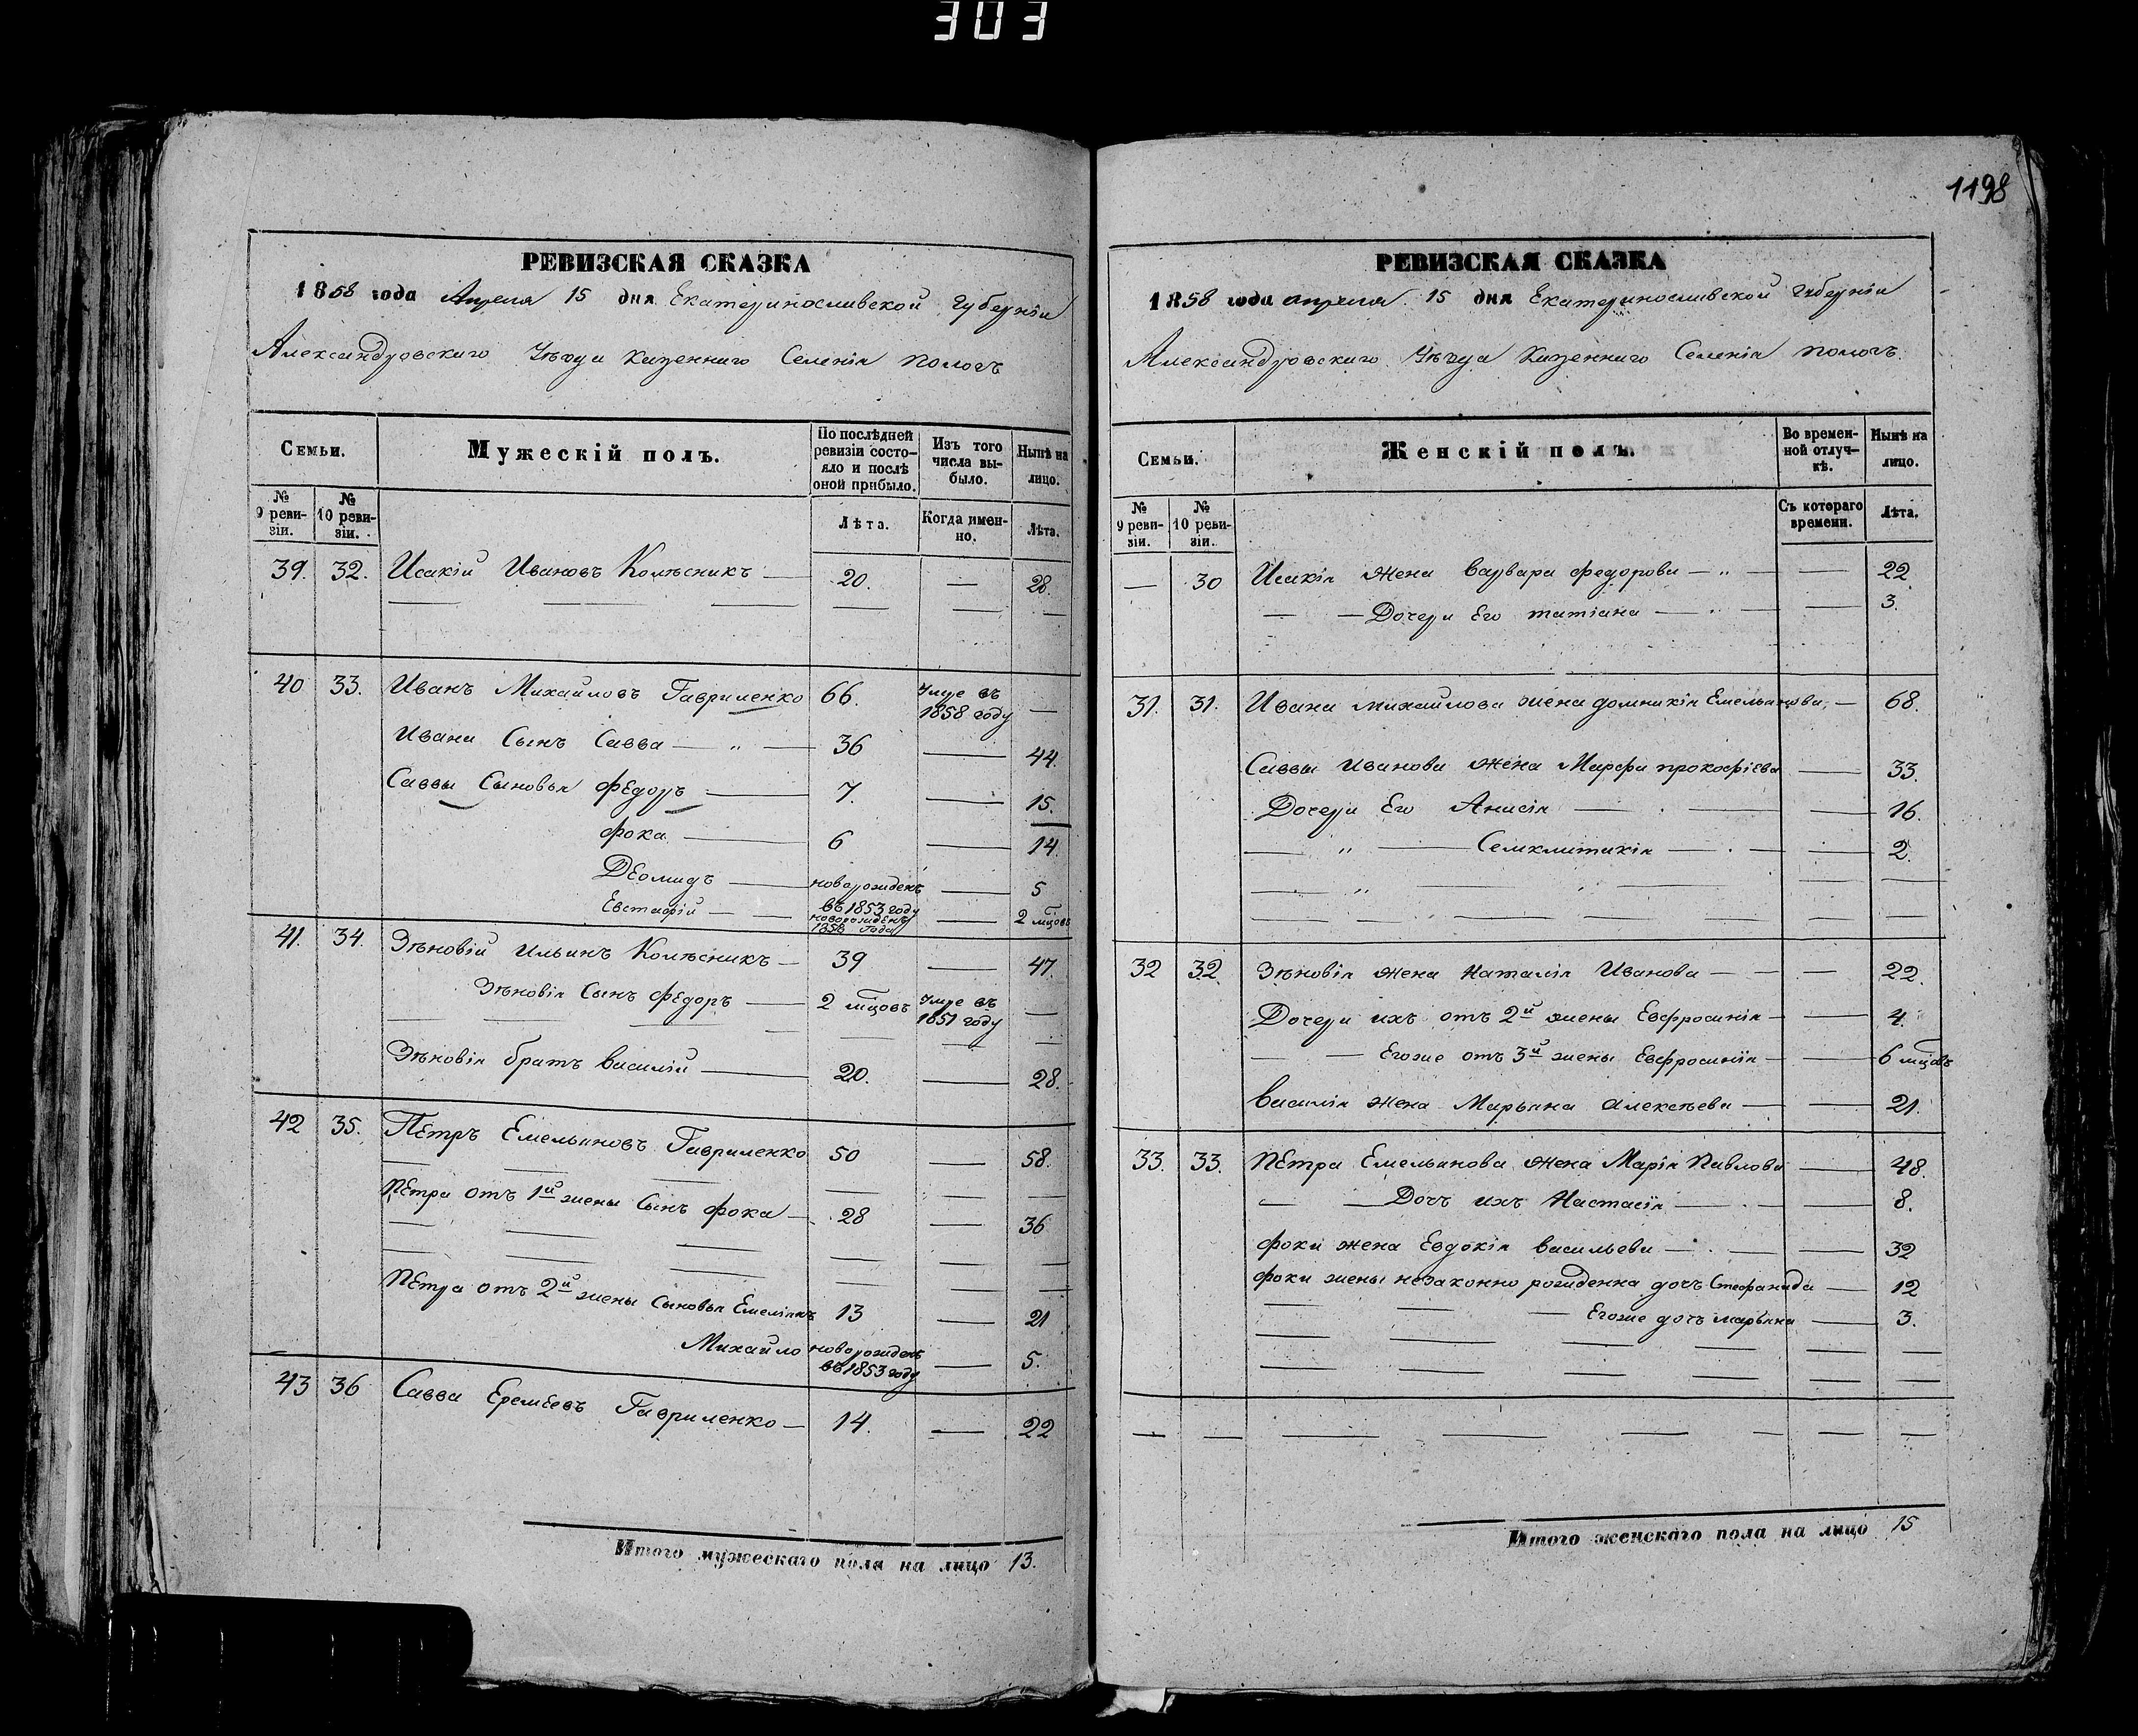 303
1198
РЕВИЗСКАЯ СКАЗКА
1858 года Апреля 15 дня Екатеринославской губерніи
Александровскаго Уѣзда казеннаго Селенія Пологъ
Семьи.
Мужескій полъ.
По послѣдней ревизіи состояло и послѣ оной прибыло.
Изъ того числа выбыло.
Нынѣ на лицо.
№ 9 ревизіи.
№ 10 ревизіи.
Лѣта.
Когда именно.
Лѣта.
39. 32. Исакій Ивановъ Колѣсникъ — 20. — 28.
40 33. Иванъ Михайловъ Гавриленко 66. Умре въ 1858 году —
Ивана Сынъ Савва — „ — 36 — 44.
Саввы Сыновья Федоръ — 7. — 15.
Фока — 6 — 14.
Деомидъ — новорожденъ въ 1853 году — 5
Евстафій — новорожденъ 1858 года — 2 мцовъ
41. 34. Зѣновій Ильинъ Колѣсникъ — 39 — 47.
Зѣновія Сынъ Федоръ — 2 мцовъ Умре въ 1851 году —
Зѣновія братъ Василій — 20. — 28.
42 35. Петръ Емельяновъ Гавриленко 50 — 58.
Петра отъ 1й жены Сынъ Фока — 28 — 36
Петра отъ 2й жены Сыновья Емеліянъ 13 — 21
Михайло новорожденъ въ 1853 году — 5.
43 36 Савва Еремѣевъ Гавриленко — 14. — 22
Итого мужескаго пола на лицо 13.
РЕВИЗСКАЯ СКАЗКА
1858 года апреля 15 дня Екатеринославской губерніи
Александровскаго Уѣзда Казеннаго Селенія Пологъ.
Семьи.
Женскій полъ.
Во временной отлучкѣ.
Нынѣ на лицо.
№ 9 ревизіи.
№ 10 ревизіи.
Съ котораго времени.
Лѣта.
— 30 Исакія жена Варвара Федорова — „ — — 22
— — Дочери Его татіана — „ — — 3.
31. 31. Ивана Михайлова жена домникія Емельянова, — 68.
Саввы Иванова жена Марфа прокофіева — 33.
Дочери Его Анисія — — 16.
— „ — Семклитикія — — 2.
32 32. Зѣновія жена Наталія Иванова — — 22.
Дочери ихъ отъ 2й жены Евфросинія — — 4.
— — Егоже отъ 3й жены Евфросинія — — 6 мцовъ
Василія жена Марьяна Алексѣева — — 21.
33. 33. Петра Емельянова жена Марія Павлова — 48.
— Дочъ ихъ Настасія — — 8.
Фоки жена Евдокія Васильева — — 32
Фоки жены незаконно рожденна дочъ Стефанида — 12
— Егоже дочъ марьяна — 3.
Итого женскаго пола на лицо 15